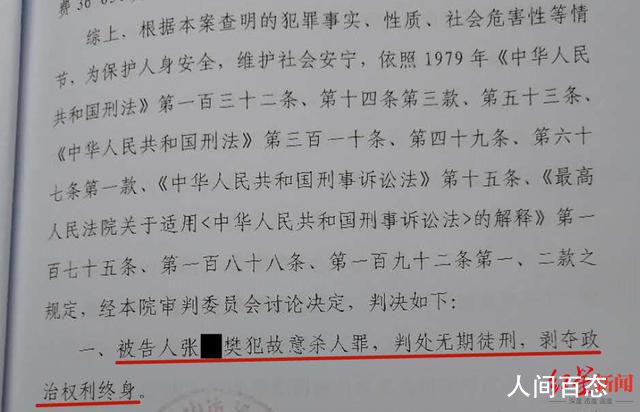 费36 05
综上，根据本案查明的犯罪事实、性质、社会危害性等情
节，为保护人身安全，维护社会安宁，依照1979年《中华人民
共和国刑法》第一百三十二条、第十四条第三款、第五十三条、
《中华人民共和国刑法》第三百一十条、第四十九条、第六十
七条第一款、《中华人民共和国刑事诉讼法》第十五条、《最高
人民法院关于适用<中华人民共和国刑事诉讼法>的解释》第一
百七十五条、第一百八十八条、第一百九十二条第一、二款之
规定，经本院审判委员会讨论决定，判决如下：
一、被告人张 樊犯故意杀人罪，判处无期徒刑，剥夺政
治权利终身。
新闻
人间百态